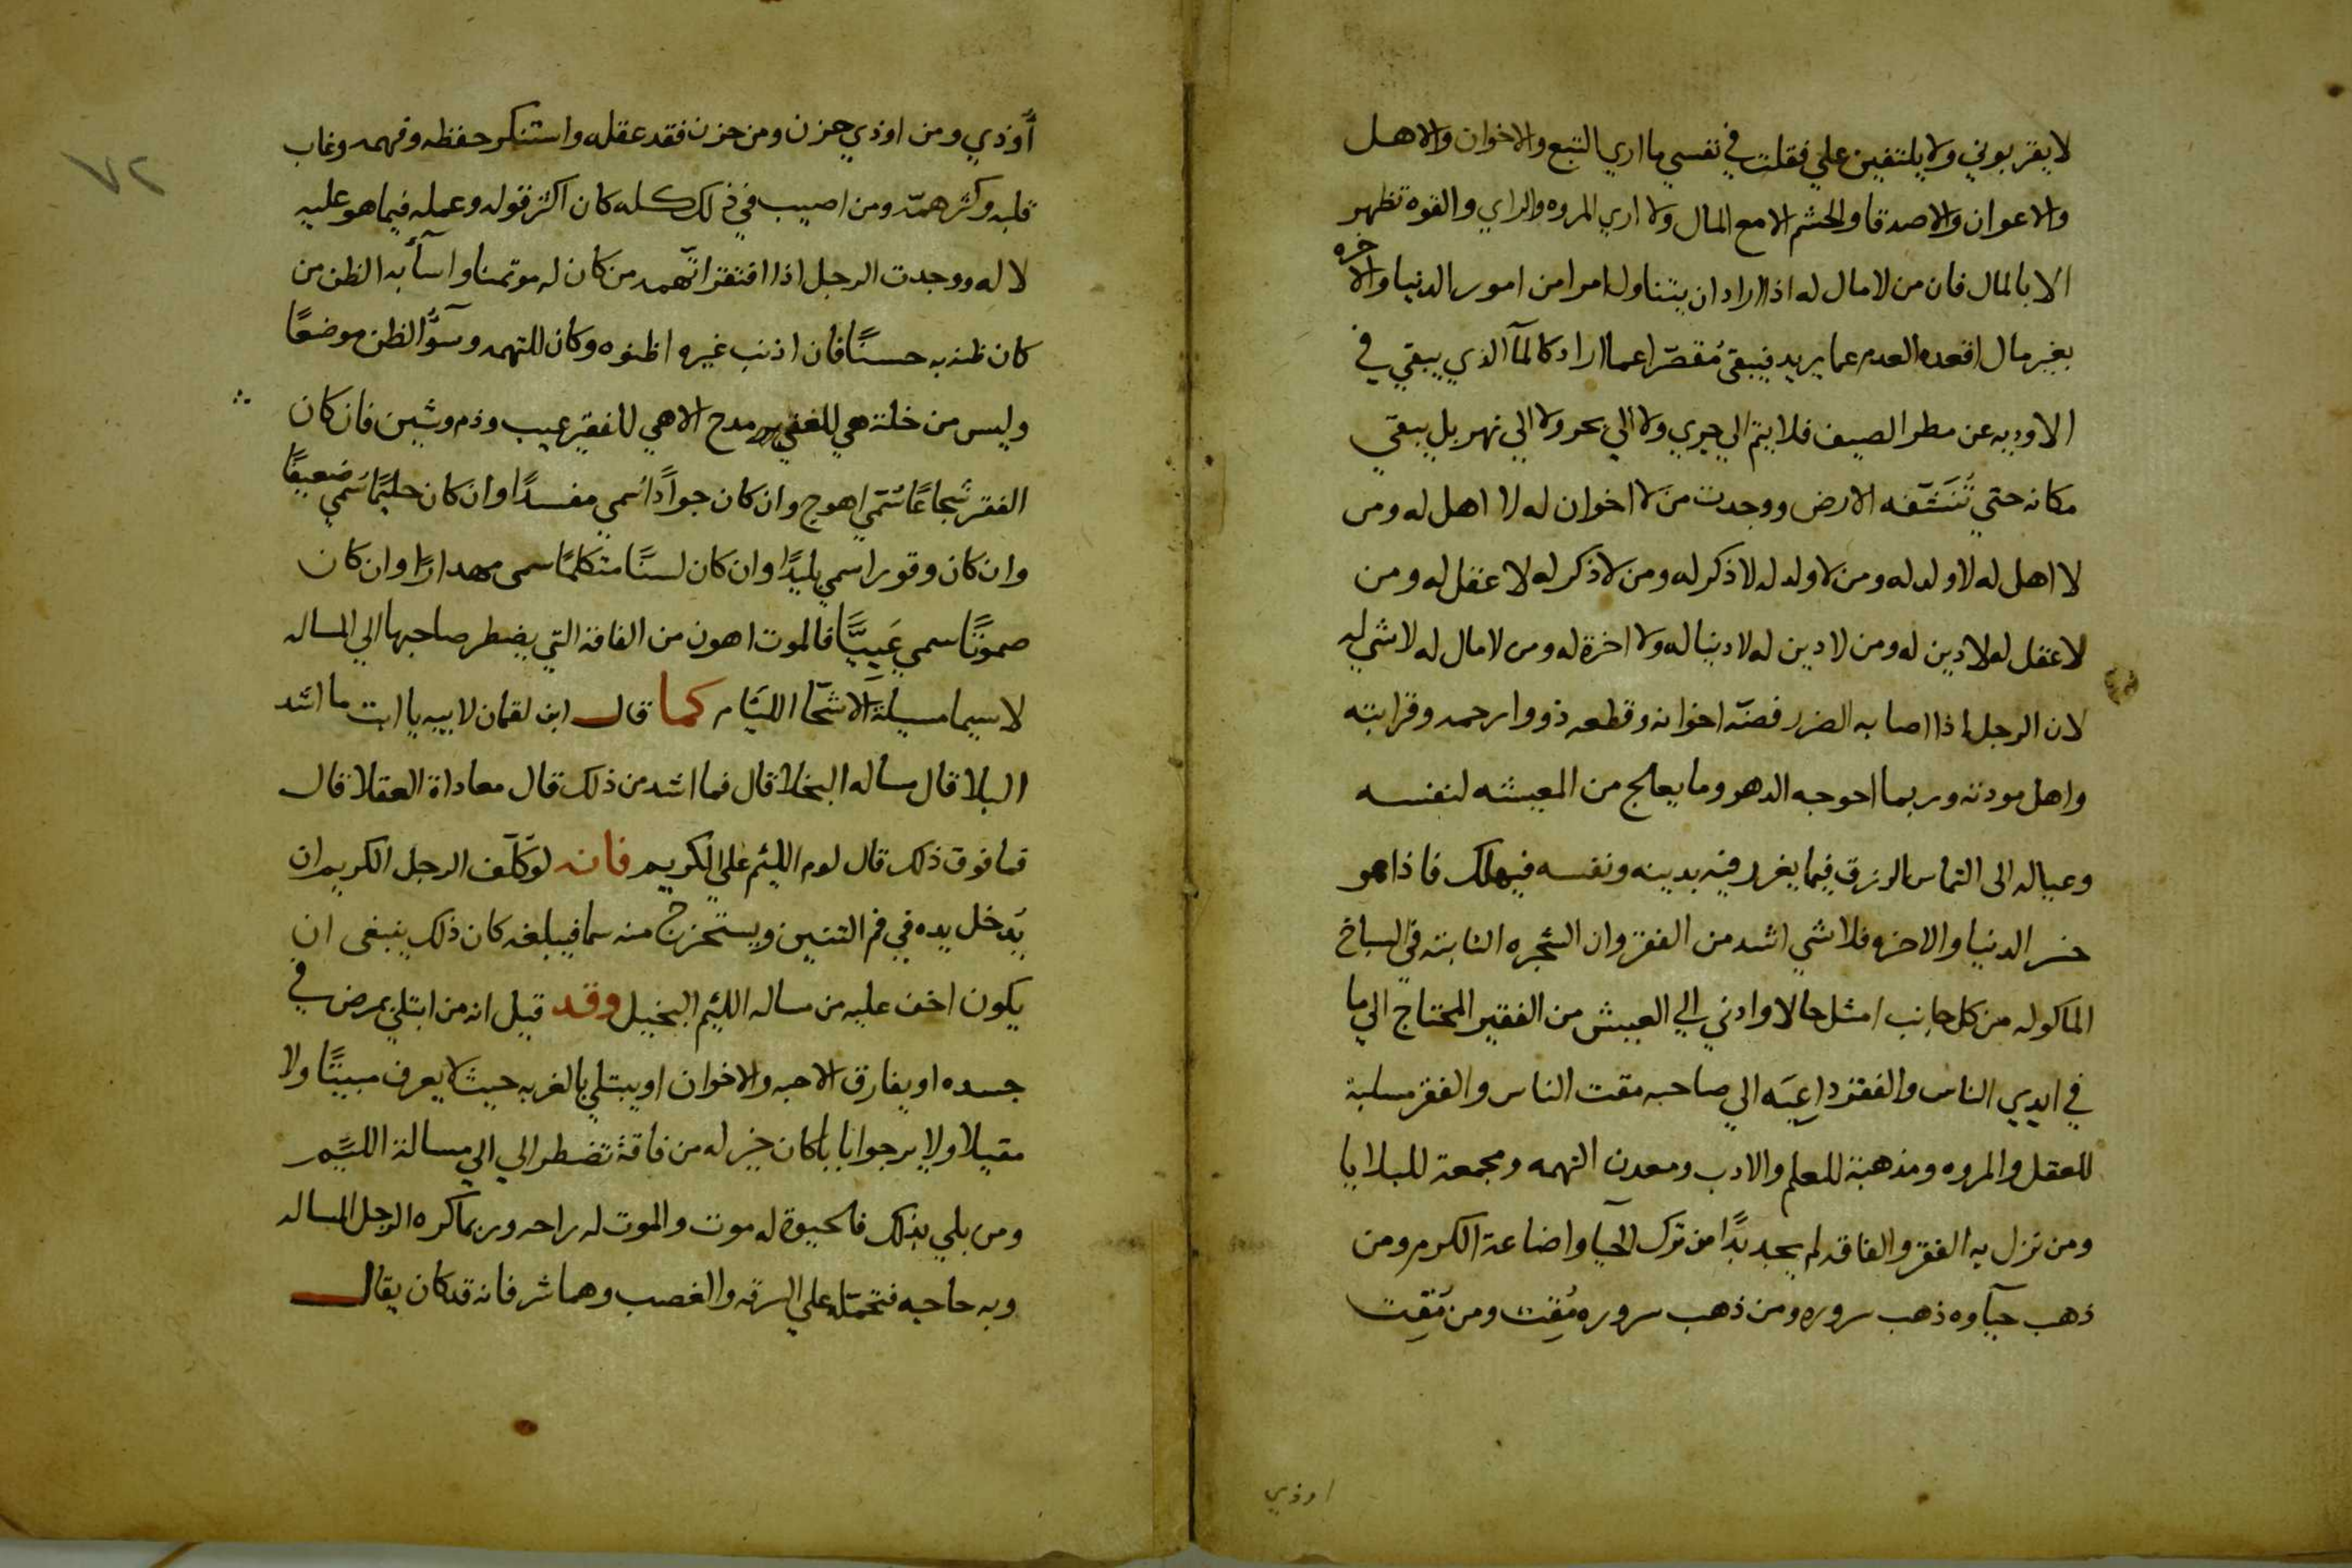 لا يقربوني ولا يلتفين علي فقلت في نفسي ما اري التبع والاخوان والاهل
والاعوان والاصدقا والحشم الا مع المال ولا اري المروه والراي والقوه تظهر
الا بالمال فان من لا مال له اذا اراد ان يتناول امرا من امور الدنيا والاخره
بغير مال اقعده العدم عما يريد فيبقي مُقصّرا عما اراد كالمآ الذي يبقي في
الاوديه عن مطر الصيف فلا يتم الي جري ولا الي بحر ولا الي نهر بل يبقي
مكانه حتي تُنَشّفه الارض ووجدت من لا اخوان له لا اهل له ومن
لا اهل له لا ولد له ومن لا ولد له لا ذكر له ومن لا ذكر له لا عقل له ومن
لا عقل له لا دين له ومن لا دين له لا دنيا له ولا اخرة له ومن لا مال له لا شي له
لان الرجل اذا اصابه الضرر فضتّه اخوانه وقطعه ذووا رحمه وقرابته
واهل مودته وربما احوجه الدهر وما يعالج من المعيشه لنفسه
وعياله الى التماس الرزق فيما يغرر فيه بدينه ونفسه فيهلك فاذا هو
خسر الدنيا والاخره فلا شي اشد من الفقر وان الشجره النابته في السباخ
الماكوله من كل جانب امثل حالا وادني الي العيش من الفقير المحتاج الي ما
في ايدي الناس والفقر داعِيَه الي صاحبه مقت الناس والفقر مسلبة
للعقل والمروه ومذهبة للعلم والادب ومعدن التهمه ومجمعة للبلايا
ومن نزل به الفقر والفاقه لم يجد بدًا من ترك الحيا واضاعة الكرم ومن
ذهب حيآوه ذهب سروره ومن ذهب سروره مُقِت ومن مُقِت
اوذي
٧٢
أُوذي ومن اوذي حزن ومن حزن فقد عقله واستنكر حفظه وفهمه وغاب
قلبه وكثر همّه ومن اصيب في ذلك كله كان اكثر قوله وعمله فيما هو عليه
لا له ووجدت الرجل اذا افتقر اتّهمه من كان له موتمنا واسآ به الظن من
كان ظنه به حسنًا فان اذنب غيره اظنوه وكان للتهمه وسوُّ الظن موضعًا
وليس من خلة هي للغني مدح الا هي للفقير عيب وذم وشين فان كان
الفقر شجاعًا سُمّي اهوج وان كان جوادًا سُمي مفسدًا وان كان حليمًا سُمي ضعيفًا
وان كان وقورا سمي بليدًا وان كان لسنًا متكلمًا سمى مهدارًا وان كان
صموتًا سمي عَيِيًّا فالموت اهون من الفاقة التي يضطر صاحبها الي المساله
لا سيما مسيلة الاشحّا اللئام كما قال ابن لقمان لابيه يا ابت ما اشد
البلا قال مساله البخلا قال فما اشد من ذلك قال معاداة العقلا قال
فما فوق ذلك قال لوم اللئيم علي الكريم فانه لو كُلّف الرجل الكريم ان
يُدخل يده في فم التنين ويستخرج منه سما فيبلغه كان ذلك ينبغى ان
يكون اخف عليه من مساله اللئيم البخيل وقد قيل انه من ابتلي بمرض في
جسده او يفارق الاحبه والاخوان او يبتلي بالغربه حيث لا يعرف مبيتًا ولا
مقيلا ولا يرجوا ايابا كان خير له من فاقة تضطر الي الي مسالة اللئيم
ومن بلي بذلك فالحيوة له موت والموت له راحه وربما كره الرجل المساله
وبه حاجه فتحمله علي السرقه والغصب وهما شر فانه قد كان يقال